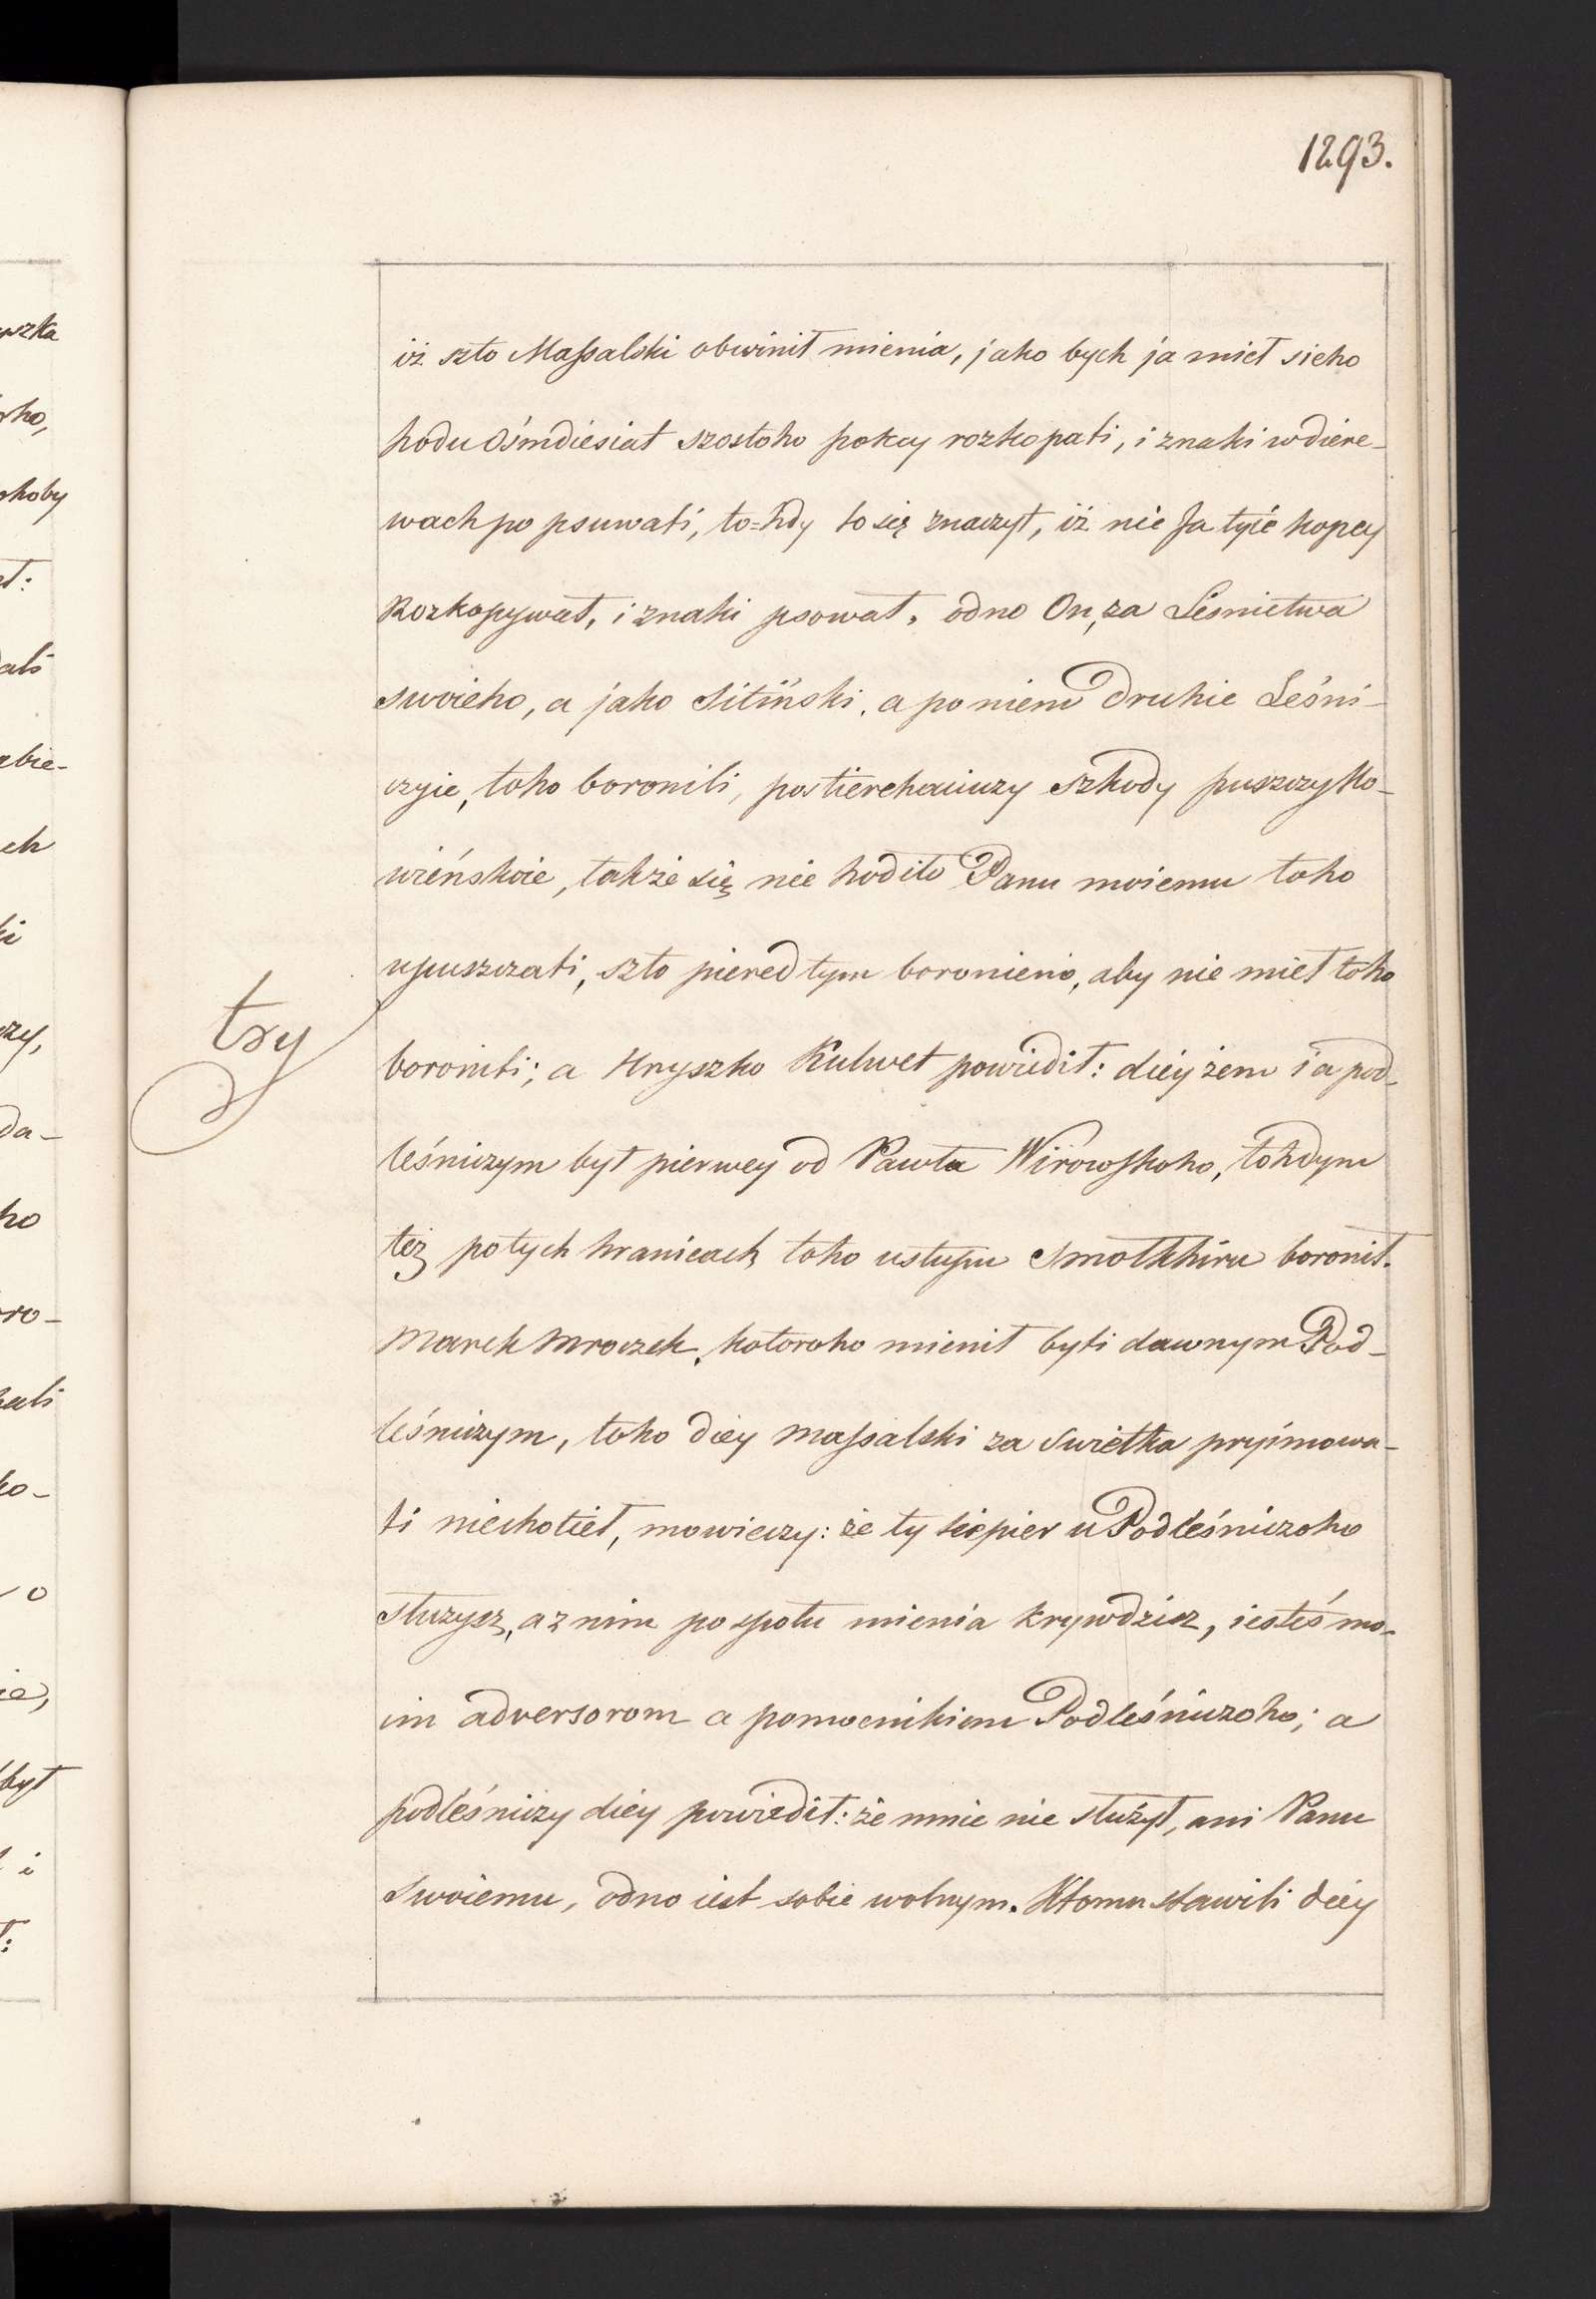 1293.
iż szto Massalski obwinił mienia, jako bych ja mieł sieho
hodu Óśmdiesiat szostoho pokcy rozkopati, i znaki w diere-
wach po psuwati, to=hdy to się znaczyt, iż nie Ja tyie kopcy
Rozkopywał, i znaki psował, odno On, za Leśnictwa
swoieho, a jako Sitiński, a po niem Druhie Leśni-
czyie, toho boronili, postierehaiuczy szkody puszczy Ko-
wieńskoie, także się nie hodiło Panu moiemu toho
upuszczati, szto piered tym boronieno, aby nie mieł toho
boroniti; a Hryszko Kulwet powiedił: diey żem i a pod-
leśniczym był pierwey od Pawła Wirowskoho, tohdym
też po tych hranicach toho ustupu Smolkhiru boronił.
Marek Mroczek, kotoroho mienił byti dawnym Pod-
leśniczym, toho diey Massalski za Swietka pryimowa-
ti niechotieł, mowieczy: że ty tiepier u Podleśniczoho
służysz, a z nim pospołu mienia krywdzisz, iesteś mo-
im adversorom a pomocnikiem Podleśniczoho; a
podleśniczy diey powiedił: że mnie nie służył, ani Panu
Swoiemu, odno iest sobie wolnym. Ktomu stawili diey
try